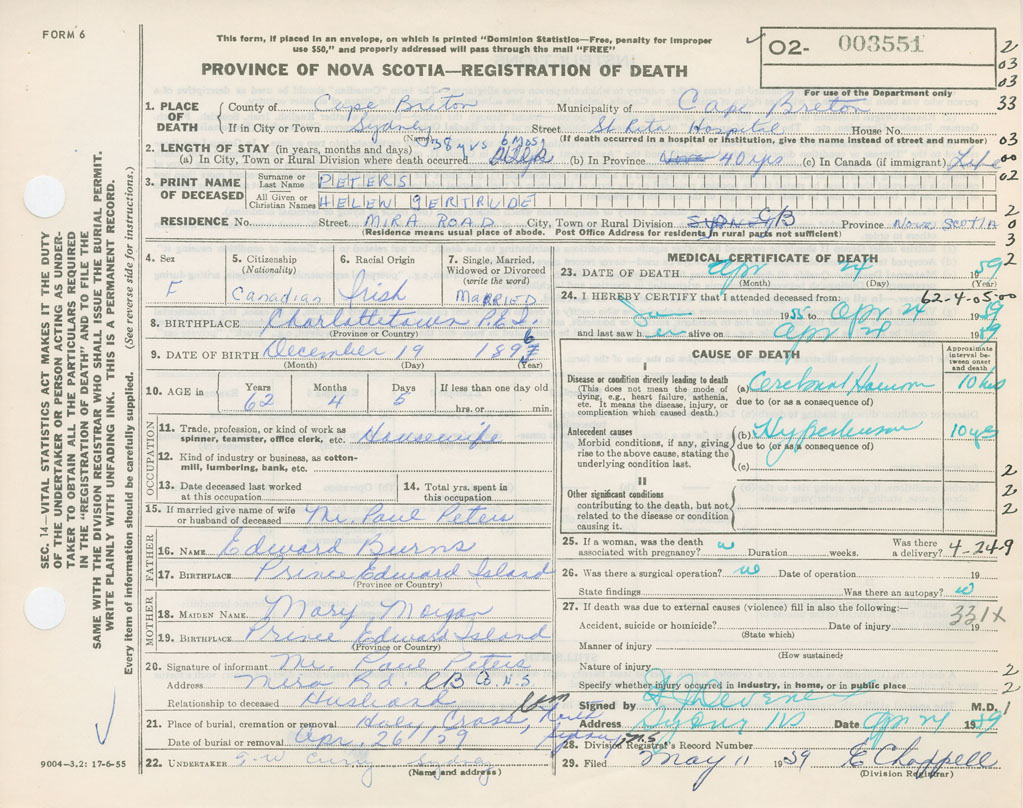 FORM 6
This form, if placed in an envelope, on which is printed "Dominion Statistics—Free, penalty for improper
use $50," and properly addressed will pass through the mail "FREE"
PROVINCE OF NOVA SCOTIA—REGISTRATION OF DEATH
02- 003551
For use of the Department only
2
03
03
33
03
00
02
2
0
3
2
SEC. 14—VITAL STATISTICS ACT MAKES IT THE DUTY
OF THE UNDERTAKER OR PERSON ACTING AS UNDER-
TAKER TO OBTAIN ALL THE PARTICULARS REQUIRED
IN THE "REGISTRATION OF DEATH" AND TO FILE THE
SAME WITH THE DIVISION REGISTRAR WHO SHALL ISSUE THE BURIAL PERMIT.
WRITE PLAINLY WITH UNFADING INK. THIS IS A PERMANENT RECORD.
Every item of information should be carefully supplied. (See reverse side for instructions.)
1. PLACE OF DEATH
County of Cape Breton Municipality of Cape Breton
If in City or Town Sydney Street St Rita Hospital House No.
(Name) (If death occurred in a hospital or institution, give the name instead of street and number)
2. LENGTH OF STAY (in years, months and days) 38 yrs 6 mos
(a) In City, Town or Rural Division where death occurred (b) In Province 40 yrs (c) In Canada (if immigrant) Life
3. PRINT NAME OF DECEASED
Surname or Last Name PETERS
All Given or Christian Names HELEN GERTRUDE
RESIDENCE No. Street MIRA ROAD City, Town or Rural Division CB Province NOVA SCOTIA
(Residence means usual place of abode. Post Office Address for residents in rural parts not sufficient)
4. Sex
F
5. Citizenship
(Nationality)
Canadian
6. Racial Origin
Irish
7. Single, Married,
Widowed or Divorced
(write the word)
MARRIED
8. BIRTHPLACE Charlottetown P.E.I.
(Province or Country)
9. DATE OF BIRTH December 19 1896
(Month) (Day) (Year)
10. AGE in
Years 62
Months 4
Days 5
If less than one day old
hrs. or min.
OCCUPATION
11. Trade, profession, or kind of work as
spinner, teamster, office clerk, etc. Housewife
12. Kind of industry or business, as cotton-
mill, lumbering, bank, etc.
13. Date deceased last worked
at this occupation
14. Total yrs. spent in
this occupation
15. If married give name of wife
or husband of deceased Mr. Paul Peters
FATHER
16. NAME Edward Burns
17. BIRTHPLACE Prince Edward Island
(Province or Country)
MOTHER
18. MAIDEN NAME Mary Morgan
19. BIRTHPLACE Prince Edward Island
(Province or Country)
20. Signature of informant Mr. Paul Peters
Address Mira Rd. CB Co. N.S.
Relationship to deceased Husband
21. Place of burial, cremation or removal Holy Cross, Sydney, N.S
Date of burial or removal Apr. 26/59
22. UNDERTAKER Curry Sydney
(Name and address)
9004-3.2: 17-6-55
MEDICAL CERTIFICATE OF DEATH
23. DATE OF DEATH Apr 24 1959
(Month) (Day) (Year)
24. I HEREBY CERTIFY that I attended deceased from: 62-4-05-00
Jan 1955 to Apr 24 1959
and last saw her alive on Apr 24 1959
CAUSE OF DEATH
Approximate
interval be-
tween onset
and death
I
Disease or condition directly leading to death
(This does not mean the mode of
dying, e.g., heart failure, asthenia,
etc. It means the disease, injury, or
complication which caused death.)
(a) Cerebral 10 hrs
due to (or as a consequence of)
Antecedent causes
Morbid conditions, if any, giving
rise to the above cause, stating the
underlying condition last.
(b) Hypertension 10 yrs
due to (or as a consequence of)
(c)
II
Other significant conditions
contributing to the death, but not
related to the disease or condition
causing it.
2
2
2
25. If a woman, was the death
associated with pregnancy? no Duration weeks. Was there
a delivery? 4-24-9
26. Was there a surgical operation? no Date of operation 19
State findings Was there an autopsy? no
27. If death was due to external causes (violence) fill in also the following:—
331X
Accident, suicide or homicide? Date of injury 19
(State which)
Manner of injury
(How sustained)
Nature of injury 2
Specify whether injury occurred in industry, in home, or in public place 2
Signed by M.D. 1
Address Sydney NS Date Apr 24 1959
28. Division Registrar's Record Number
29. Filed May 11 1959 E Chappell
(Division Registrar)